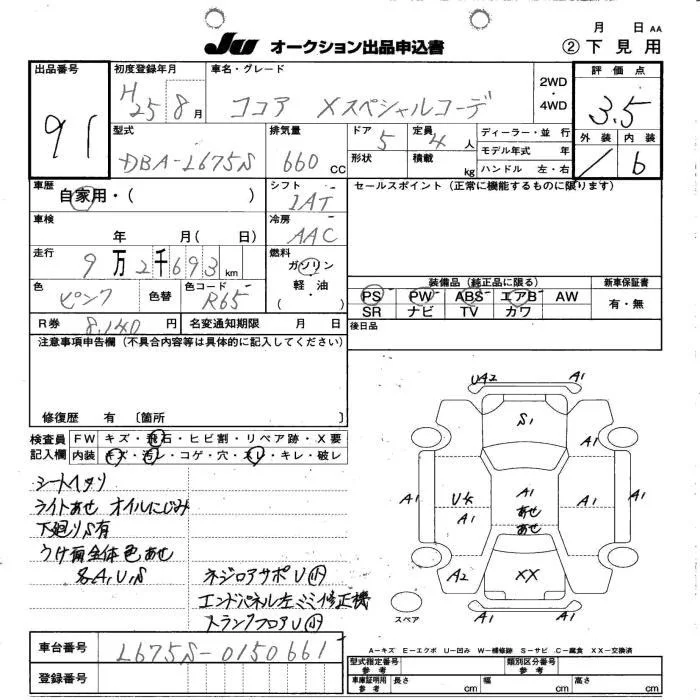 Ju オークション出品申込書
月 日 AA
② 下見用
出品番号
91
初度登録年月
H 25 8 月
車名・グレード
ココア Xスペシャルコーデ
2WD
・
4WD
評価点
3.5
外装 内装
/ b
型式
DBA-L675S
排気量
660 CC
ドア 5
形状
定員 4 人
積載 kg
ディーラー・並行
モデル年式 年
ハンドル 左・右
車歴
自家用・( )
シフト
IAT
セールスポイント (正常に機能するものに限ります)
車検
年 月( 日)
冷房
AAC
走行
9万2千693 km
燃料
ガソリン
軽油・
( )
色
ピンク
色替
色コード
R65
装備品(純正品に限る)
PS PW ABS エアB AW
SR ナビ TV カワ
新車保証書
有・無
R券 8,140 円
名変通知期限 月 日
後日品
注意事項申告欄(不具合内容等は具体的に記入してください)
修復歴 有 〔箇所 〕
検査員
記入欄
FW キズ・飛石・ヒビ割・リペア跡・X要
内装 キズ・汚レ・コゲ・穴・スレ・キレ・破レ
シートヘタリ
ライトあせ オイルにじみ
下廻りS有
うけ前全体色あせ
各A,U,S
ネジロアサポU
エンドパネル左ミミ修正機
トランクフロアU
UA2 A1
S1
A1 A1
A1 UK A1 A1 A1 A1
あせ
あせ
A2 XX A1
A1
スペア
車台番号
L675S-0150661
登録番号
A-キズ E-エクボ U-凹み W-補修跡 S-サビ C-腐食 XX-交換済
型式指定番号
参考
類別区分番号
参考
車庫証明用
参考
長さ cm 幅 cm 高さ cm